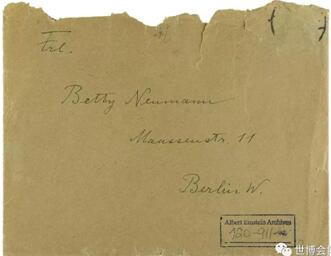 Frl.
Betty Neumann
Maassenstr. 11
Berlin W.
Albert Einstein Archives
120-911
世博会